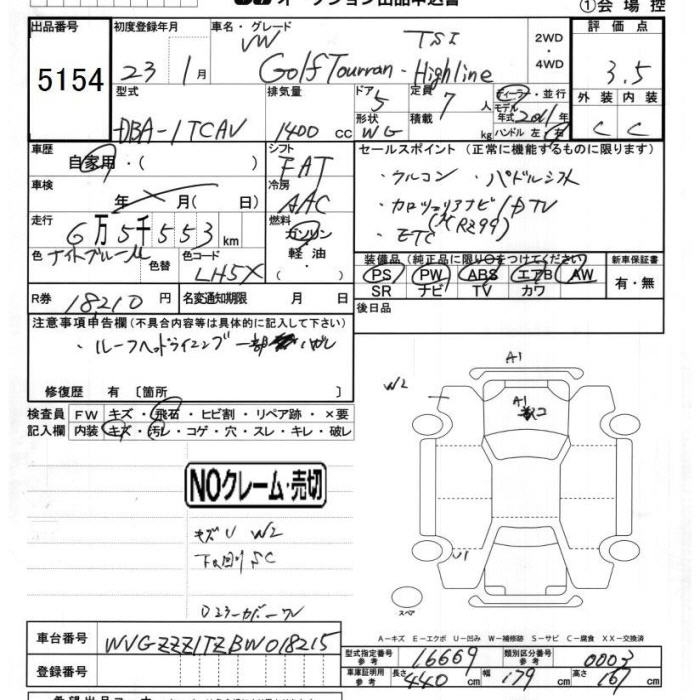 オークション出品申込書
①会場控
出品番号
5154
初度登録年月
23 1月
車名・グレード
VW TSI
Golf Touran・Highline
2WD
・
4WD
評価点
3.5
外装 内装
C C
型式
DBA-1TCAV
排気量
1400 cc
ドア 5
形状 WG
定員 7 人
積載 kg
ディーラー・並行
モデル
年式 2011年
ハンドル 左・右
車歴
自家用・( )
シフト
FAT
セールスポイント (正常に機能するものに限ります)
・ウルコン ・パドルシフト
・カロッツェリアナビ/DTV
・ETC (RZ99)
車検
年 月( 日)
冷房
AAC
走行
6万5千553km
燃料
ガソリン
軽油
・( )
色 ナイトブルーM
色替
色コード
LH5X
装備品 (純正品に限り○をつけてください)
PS PW ABS エアB AW
SR ナビ TV カワ
新車保証書
有・無
R券 18210円
名変通知期限 月 日
後日品
注意事項申告欄 (不具合内容等は具体的に記入して下さい)
・ルーフヘッドライニング一部ハガレ
修復歴 有 〔箇所 〕
検査員
記入欄
FW キズ・飛石・ヒビ割・リペア跡・×要
内装 キズ・汚レ・コゲ・穴・スレ・キレ・破レ
NOクレーム・売切
キズU W2
下回りSC
A1
W2
A1
U1
スペア
A−キズ E−エクボ U−凹み W−補修跡 S−サビ C−腐食 XX−交換済
車台番号
WVGZZZ1TZBW018215
登録番号
型式指定番号
参考
16669
類別区分番号
参考
0003
車庫証明用
参考
長さ 440 cm 幅 179 cm 高さ 167 cm